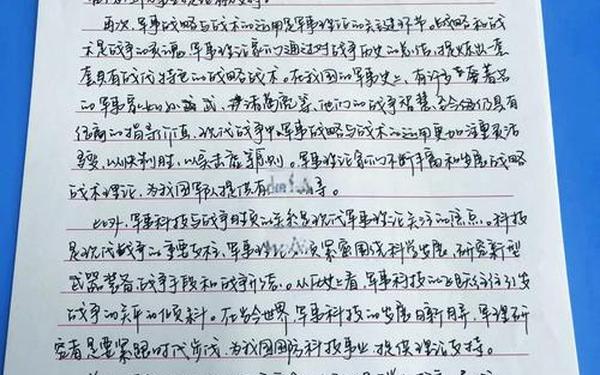 再次,军事战略与战术的运用是军事理论的关键环节。战略和战
术是战争的灵魂,军事理论家们通过对战争历史的总结,提炼出一套
套具有战代特色的战略战术。在我国的军事史上,有许多著名
的军事家如孙武、诸葛亮等,他们的战争智慧,至今仍具有
很高的指导价值。现代战争中,军事战略与战术的运用更加注重灵活
多变,以快制胜,以实击虚原则。军事理论家们不断丰富和发展战略
战术理论,为我国军队提供有导。
此外,军事科技与战争胜负的关系是现代军事理论关注的焦点。科技
是现代战争的重要支柱,军事理论必须紧密围绕科学发展,研究新型
武器装备战争手段和战争形态。从历史上看,军事科技的进步往往引发
战争的天平的倾斜。在当今世界,军事科技的发展日新月异,军理研
究者是要紧跟时代步伐,为我国国防科技事业提供理论支持。